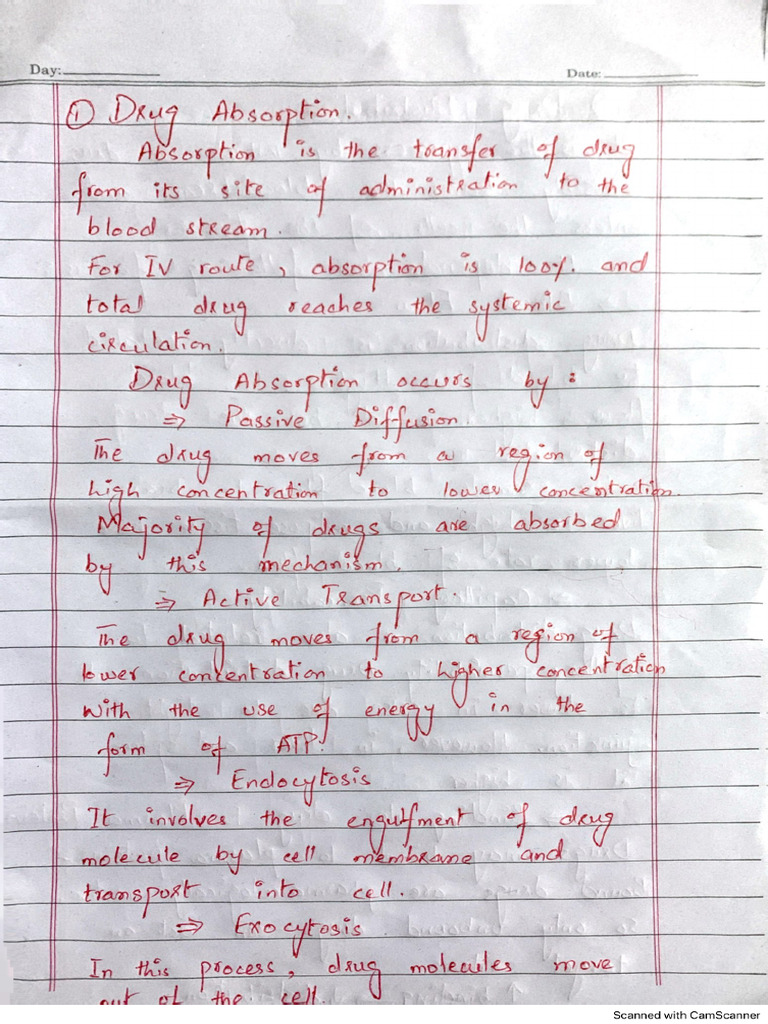 Day:
Date:
① Drug Absorption.
Absorption is the transfer of drug
from its site of administration to the
blood stream.
For IV route, absorption is 100% and
total drug reaches the systemic
circulation.
Drug Absorption occurs by :
⇒ Passive Diffusion.
The drug moves from a region of
high concentration to lower concentration.
Majority of drugs are absorbed
by this mechanism.
⇒ Active Transport.
The drug moves from a region of
lower concentration to higher concentration
with the use of energy in the
form of ATP.
⇒ Endocytosis
It involves the engulfment of drug
molecule by cell membrane and
transport into cell.
⇒ Exocytosis
In this process, drug molecules move
out of the cell.
Scanned with CamScanner